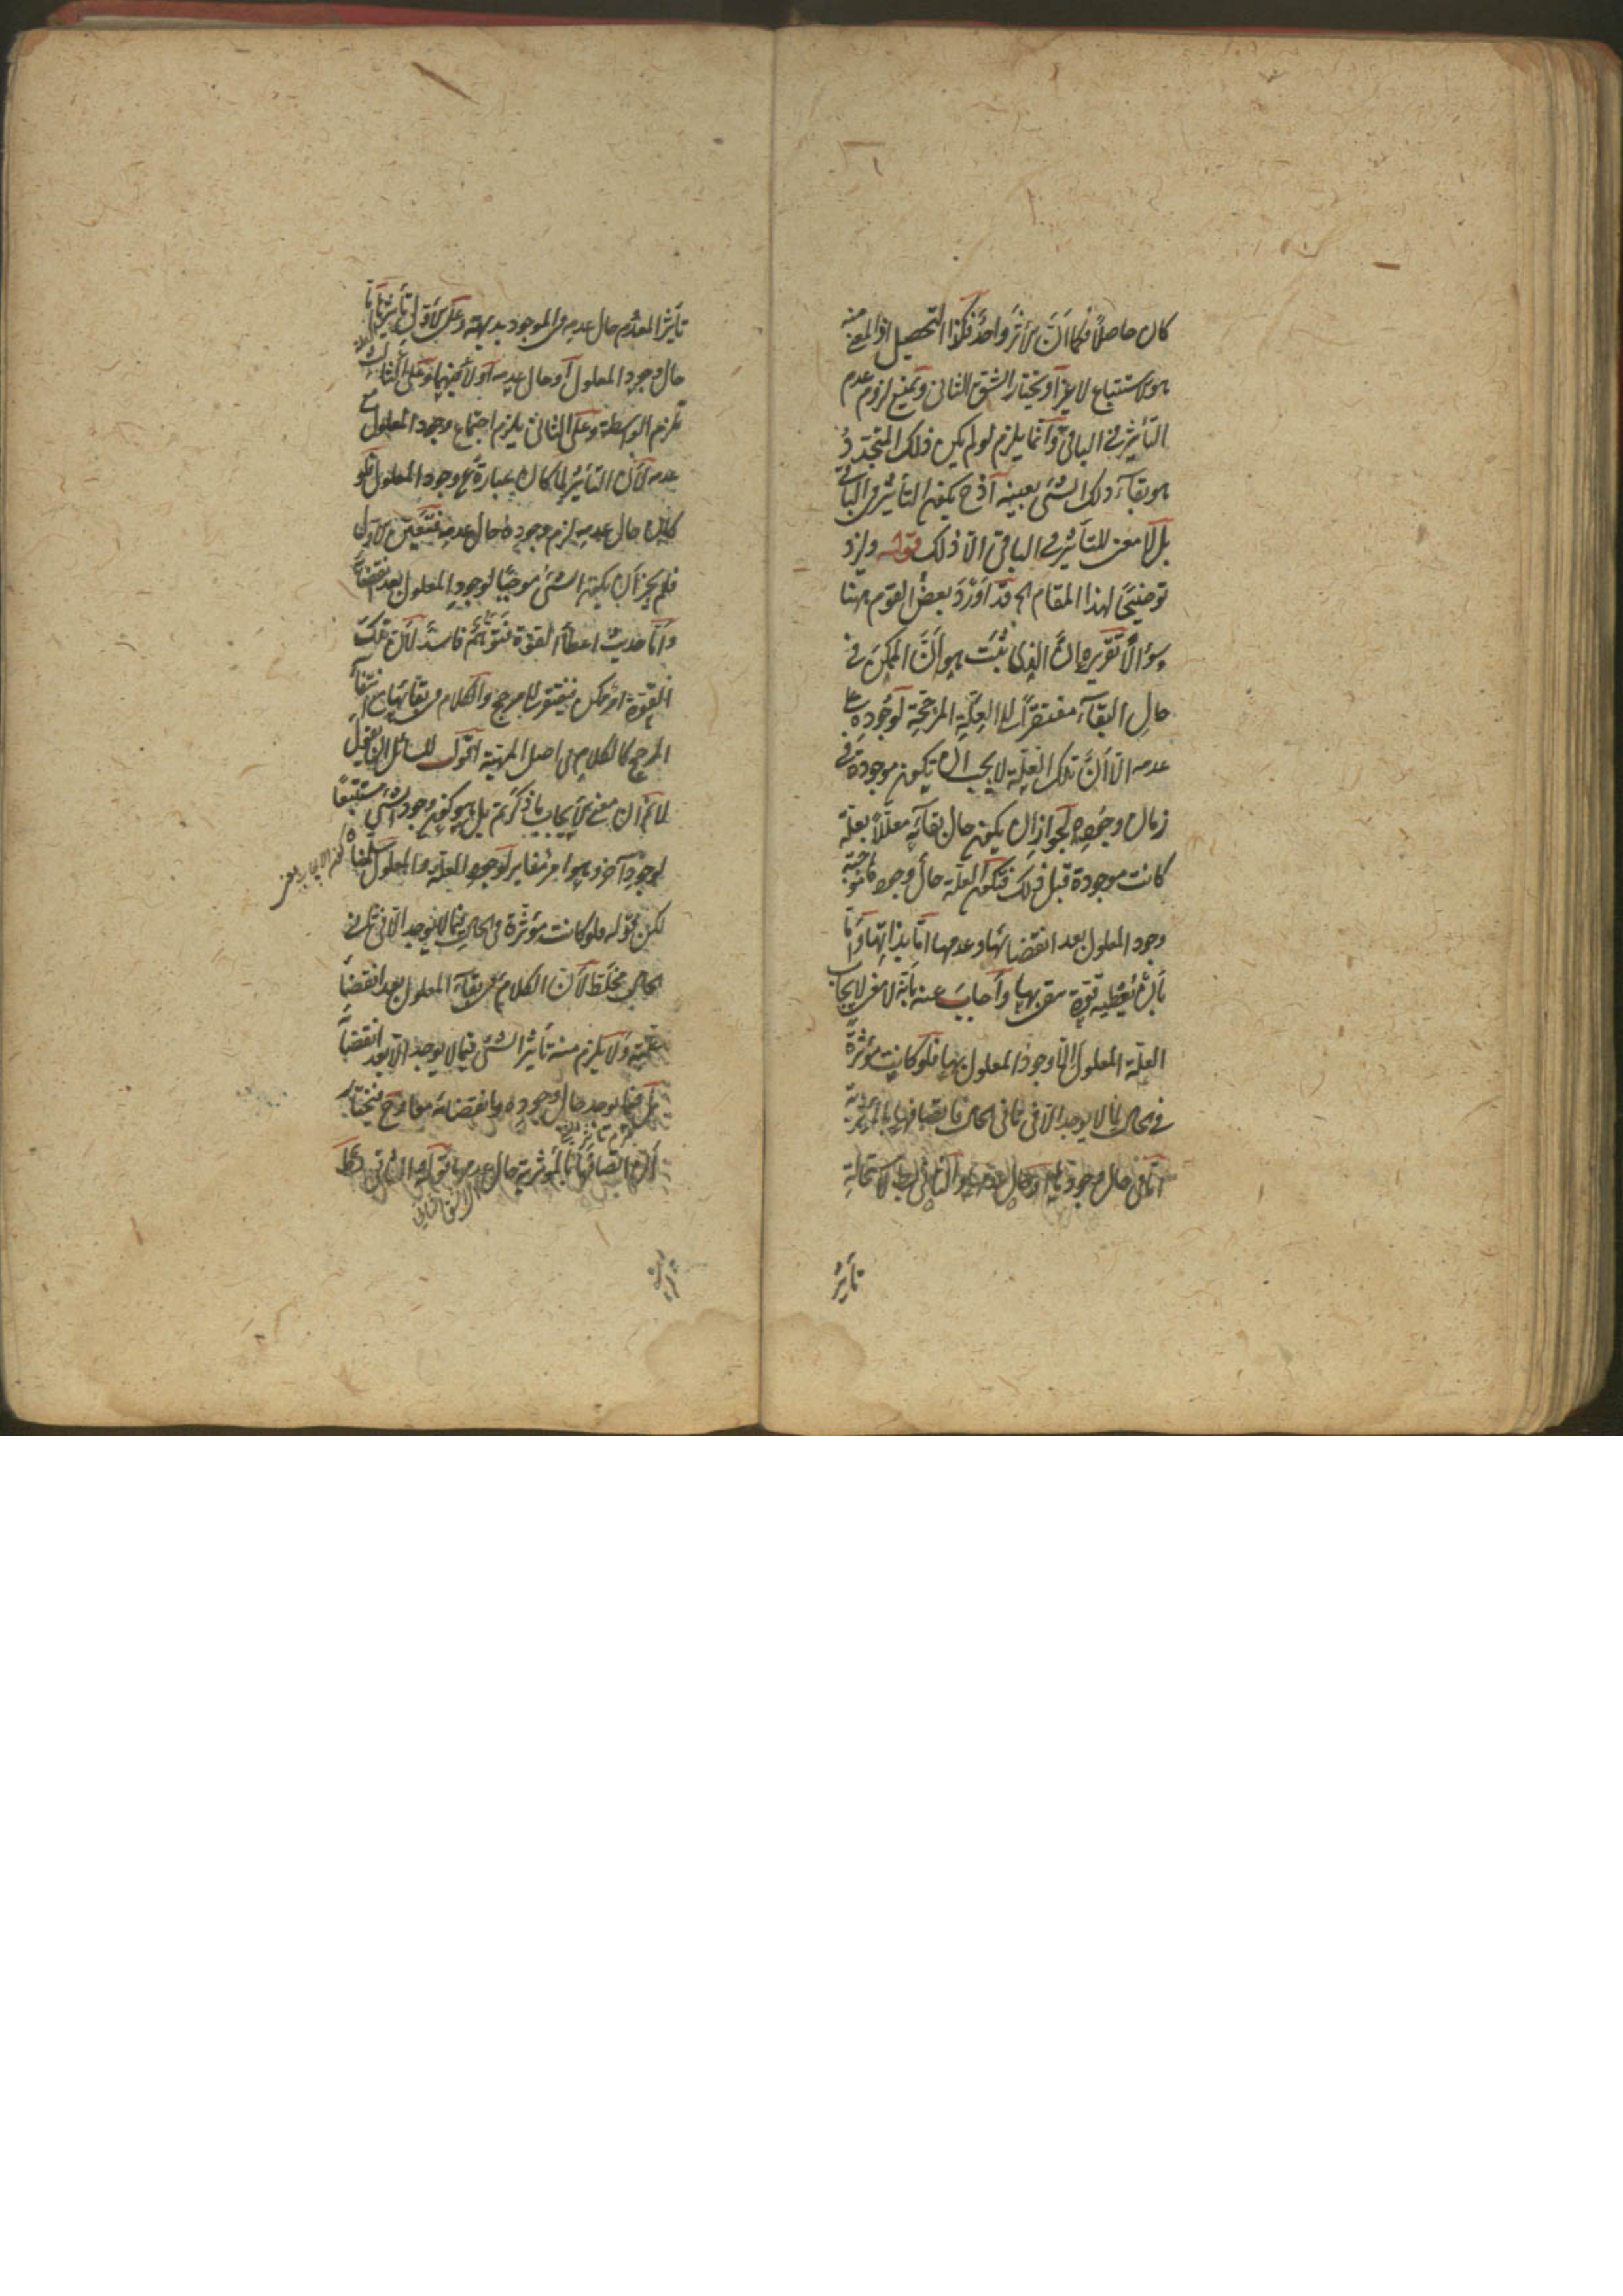 كان حاصلا فكما ان الاثر واحد فكذا التحصيل اذ المعنى منه
هو الاستتباع لا غير او نختار الشق الثاني ونمنع لزوم عدم
التأثير في الباقي وانما يلزم لو لم يكن ذلك المتجدد
هو بقاء ذلك الشئ بعينه اذ ح يكون التأثير في الباقي
بل لا معنى للتأثير في الباقي الا ذلك قوله ولنزد
توضيحا لهذا المقام الخ قد اورد بعض القوم ههنا
سؤالا تقريره ان الذي ثبت هو ان الممكن في
حال البقاء مفتقر الى العلة المرجحة لوجوده على
عدمه الا ان تلك العلة لا يجب ان تكون موجودة في
زمان وجوده لجواز ان يكون حال بقائه معللا بعلة
كانت موجودة قبل ذلك فتكون العلة حال وجودها موجبة
وجود المعلول بعد انقضائها وعدمها اما بذاتها واما
بان تعطيه قوة يبقى بها واجاب عنه بانه لا معنى لايجاب
العلة المعلول الا وجود المعلول بها فلو كانت مؤثرة
في الحال فيما لا يوجد الا في ثاني الحال فاتصافها بالمؤثرية
اما في حال وجود المعلول او حال عدمه والثاني باطل لاستحالة
تأثير
تأثير المعدوم حال عدمه في الموجود بديهة وعلى الاول تأثيرها اما
حال وجود المعلول او حال عدمه او لا فيهما وعلى الثالث
تلزم الواسطة وعلى الثاني يلزم اجتماع وجود المعلول مع
عدمه لان التأثير لما كان عبارة عن وجود المعلول فلو
كان حال عدمه لزم وجوده حال عدمه فتعين الاول
فلم يجز ان يكون الشئ موجبا لوجود المعلول بعد انقضائه
واما حديث اعطاء القوة فتوهم فاسد لان تلك
القوة امر ممكن فيفتقر الى مرجح والكلام في بقائها مع انتفاء
المرجح كالكلام في اصل المهية اقول للسائل ان يقول
لا نم ان معنى الايجاب ما ذكرتم بل هو كون وجود الشئ مستتبعا
لوجود آخر وهو امر مغاير لوجود العلة والمعلول سلمناه
لكن قوله فلو كانت مؤثرة في الحال فيما لا يوجد الا في ثاني
الحال مغلطة لان الكلام في بقاء المعلول بعد انقضاء
علته ولا يلزم منه تأثير الشئ فيما لا يوجد الا بعد انقضائه
بل فيما يوجد حال وجوده وانقضائه معا وح فيختار
ان اتصافها بالمؤثرية حال عدمها قوله والثاني باطل